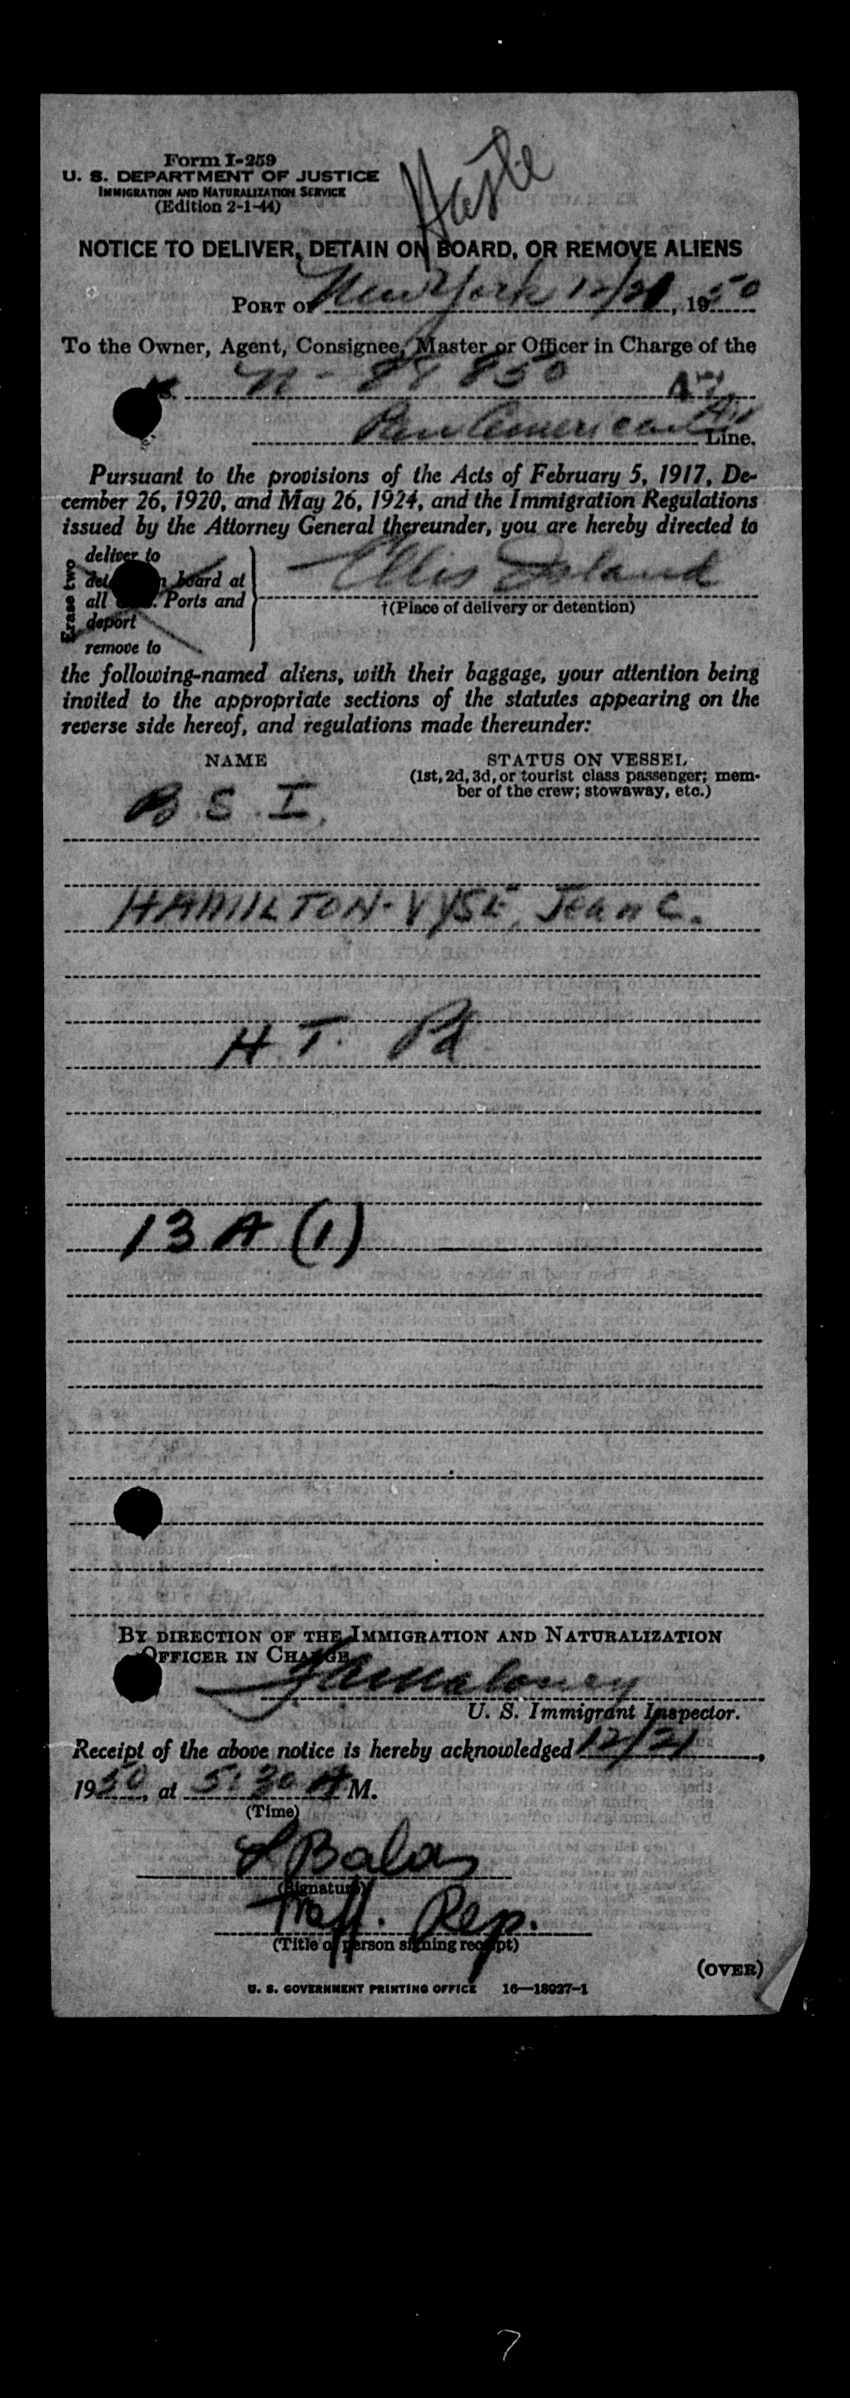 Form I-259
U. S. DEPARTMENT OF JUSTICE
IMMIGRATION AND NATURALIZATION SERVICE
(Edition 2-1-44)
NOTICE TO DELIVER, DETAIN ON BOARD, OR REMOVE ALIENS
PORT OF New York 12/21, 1950
To the Owner, Agent, Consignee, Master or Officer in Charge of the
N-88850
Pan American Air Line.
Pursuant to the provisions of the Acts of February 5, 1917, De-
cember 26, 1920, and May 26, 1924, and the Immigration Regulations
issued by the Attorney General thereunder, you are hereby directed to
Erase two
deliver to
board at
all Ports and
deport
remove to
Ellis Island
†(Place of delivery or detention)
the following-named aliens, with their baggage, your attention being
invited to the appropriate sections of the statutes appearing on the
reverse side hereof, and regulations made thereunder:
NAME
STATUS ON VESSEL
(1st, 2d, 3d, or tourist class passenger; mem-
ber of the crew; stowaway, etc.)
B.S.I.
HAMILTON-VYSE, Jean C.
H.T. Pd
13 A (1)
BY DIRECTION OF THE IMMIGRATION AND NATURALIZATION
OFFICER IN CHARGE
Maloney
U. S. Immigrant Inspector.
Receipt of the above notice is hereby acknowledged 12/21,
1950, at 5:30 A M.
(Time)
Balas
(Signature)
Traff. Rep.
(Title of person signing receipt)
(OVER)
U. S. GOVERNMENT PRINTING OFFICE 16—18027-1
7